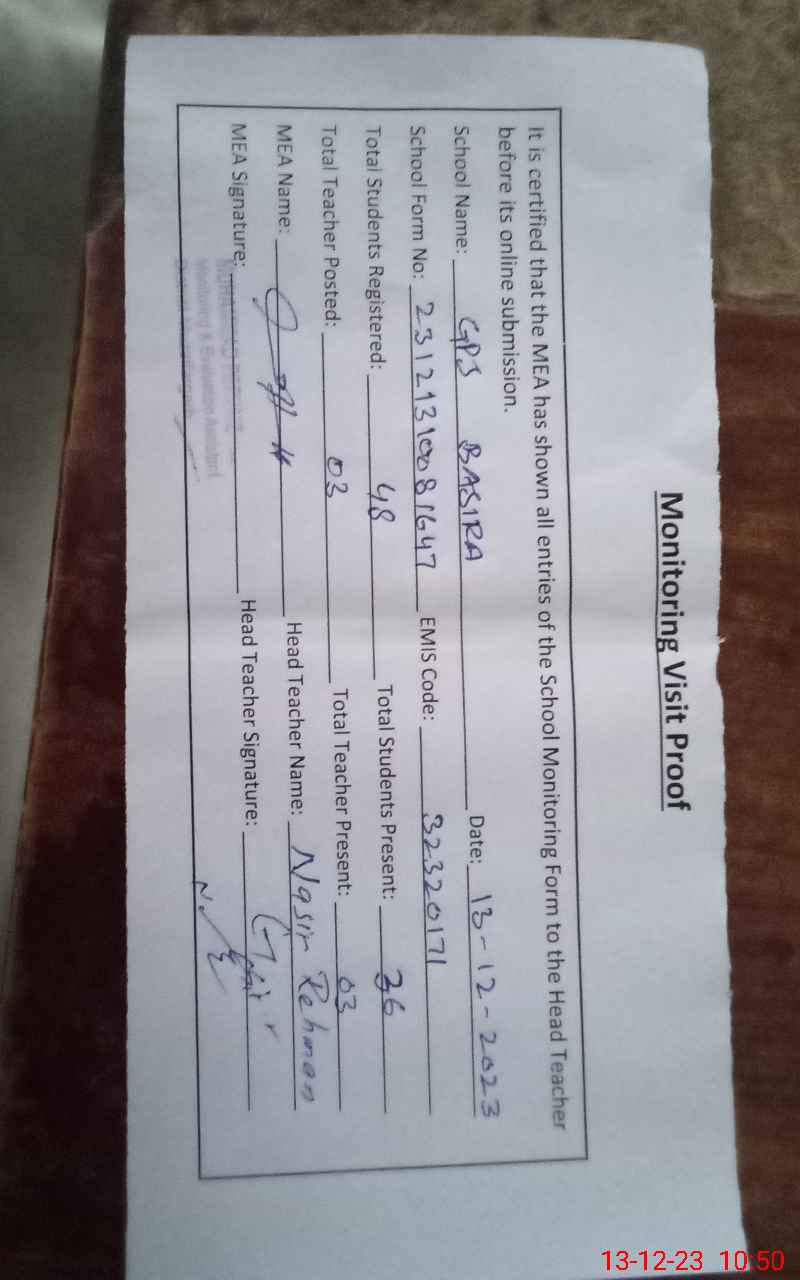 Monitoring Visit Proof
It is certified that the MEA has shown all entries of the School Monitoring Form to the Head Teacher
before its online submission.
School Name: GPS BASIRA Date: 13-12-2023
School Form No: 23121310081647 EMIS Code: 32320171
Total Students Registered: 48 Total Students Present: 36
Total Teacher Posted: 03 Total Teacher Present: 03
MEA Name: Head Teacher Name: Nasir Rehman
MEA Signature: Head Teacher Signature:
Monitoring & Evaluation Assistant
13-12-23 10:50